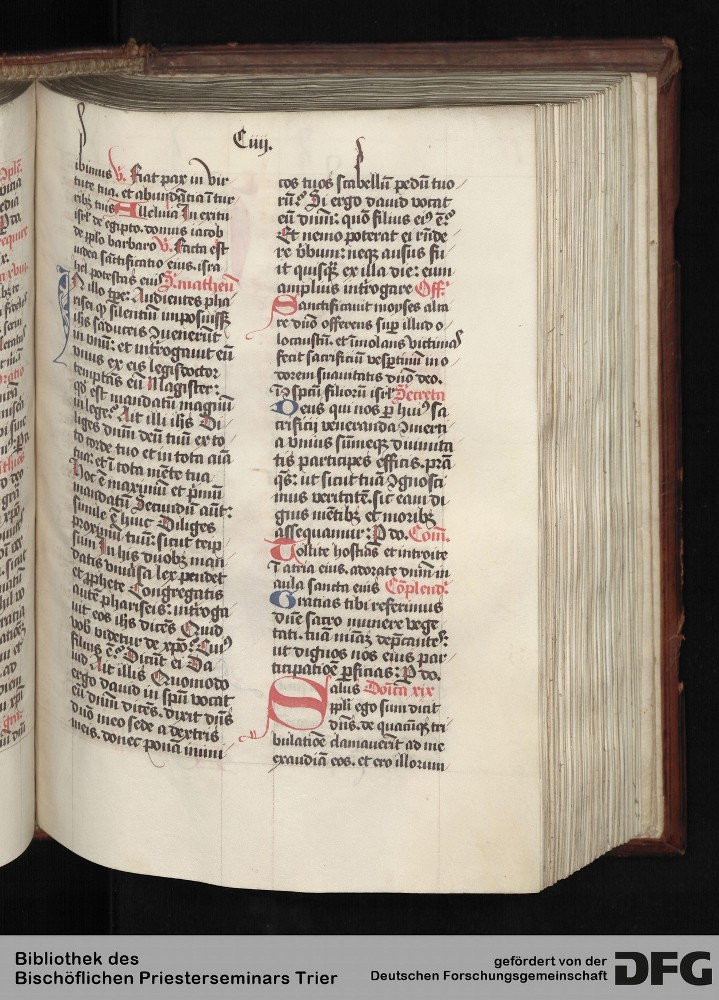 Ciiij.
ibimus ℣. Fiat pax in vir
tute tua. et abūndātia ī tur
ribꝫ tuis Alleluia In exitu
isrl̄ de egipto. domus iacob
de pplō barbaro ℣. Facta est
iudea sāctificatio eius. isra
hel potestas eiꝰ S. matheū
In illo tp̄e: Audientes pha
risei ꝙ silentiū imposuisset
ihs saduceis Jueuerūt
in vnū: et introgauit eū
vnus ex eis legisdoctor
temptās eū Magister:
qd̓ est mandatū magnū
in lege? Ait illi ihs Di
liges dn̄m deū tuū ex to
to corde tuo et in tota aīa
tua: et ī tota mēte tua
Hoc ē maximū et pͥmū
mandatū Secundū aūt:
simile ē huic Diliges
proximū tuū: sicut teip
sum In his duobꝫ man
datis vniūsa lex pendet
et ꝓphete Congregatis
autē phariseis: introga
uit eos ihs dicēs Quid
vob̄ videtur de xp̄o? Cuiꝰ
filiꝰ ē? Dicūt ei Da
uid Ait illis Quomodo
ergo dauid in spū vocat
eū dn̄m dicēs. dixit dn̄s
dn̄o meo sede a dextris
meis. donec ponā inimi
cos tuos scabellū pedū tuo
rū? Si ergo dauid vocat
eū dn̄m: quō filius eiꝰ ē?
Et nemo poterat ei rn̄de
re v̓bum: neqꝫ ausus fu
it quisꝙ̄ ex illa die: eum
amplius introgare Off.
Sanctificauit moyses alta
re dn̄o offerens suꝑ illud o
locaustū. et īmolans victimaꝰ
fecit sacrificiū vesptinū in o
dorem suauitatis dn̄o deo.
ī ꝯspcū filiorū isrl̄ Secreta
Deus qui nos ꝑ huiꝰ sa
crificii veneranda ꝯmerti
a vnius sūmeqꝫ diuinita
tis participes efficis. prā
qs̄: ut sicut tuā ꝯgnosci
mus veritatē. sic eam di
gnis mētibꝫ et moribꝫ
assequamur: P do. Com̄.
Tollite hostias et introite
ī atria eius. adorate dn̄m in
aula sancta eius Cōplend.
Gratias tibi referimus
dn̄e sacro munere vege
tati. tuā mīaꝫ dep̄cantes:
ut dignos nos eius par
ticipatiōe ꝑficias: P do.
Salus Dom̄ca xix
ppl̄i ego sum dicit
dn̄s. de quacūqꝫ tri
bulatiōe clamauerīt ad me
exaudiā eos. et ero illorum
Bibliothek des
Bischöflichen Priesterseminars Trier
gefördert von der
Deutschen Forschungsgemeinschaft
DFG